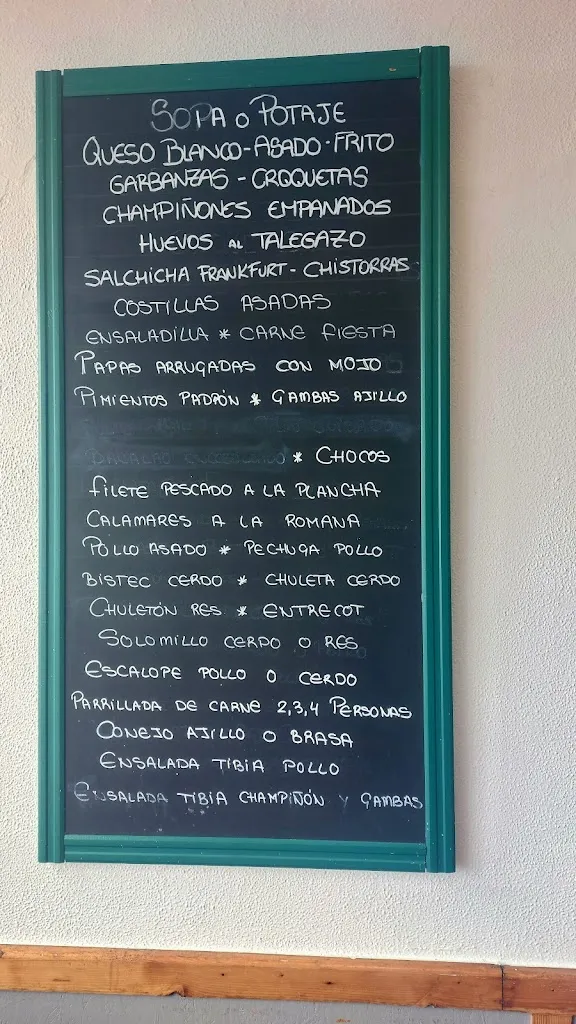 SOPA o POTAJE
QUESO BLANCO-ASADO-FRITO
GARBANZAS - CROQUETAS
CHAMPIÑONES EMPANADOS
HUEVOS AL TALEGAZO
SALCHICHA FRANKFURT - CHISTORRAS
COSTILLAS ASADAS
ENSALADILLA * CARNE FIESTA
PAPAS ARRUGADAS CON MOJO
PIMIENTOS PADRÓN * GAMBAS AJILLO
* CHOCOS
FILETE PESCADO A LA PLANCHA
CALAMARES A LA ROMANA
POLLO ASADO * PECHUGA POLLO
BISTEC CERDO * CHULETA CERDO
CHULETÓN RES * ENTRECOT
SOLOMILLO CERDO O RES
ESCALOPE POLLO O CERDO
PARRILLADA DE CARNE 2,3,4 PERSONAS
CONEJO AJILLO O BRASA
ENSALADA TIBIA POLLO
ENSALADA TIBIA CHAMPIÑÓN Y GAMBAS